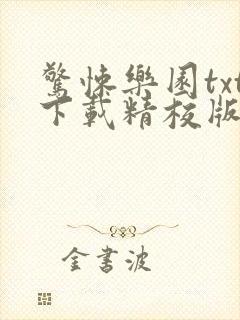 驚悚樂園txt
下載精校版
金書波